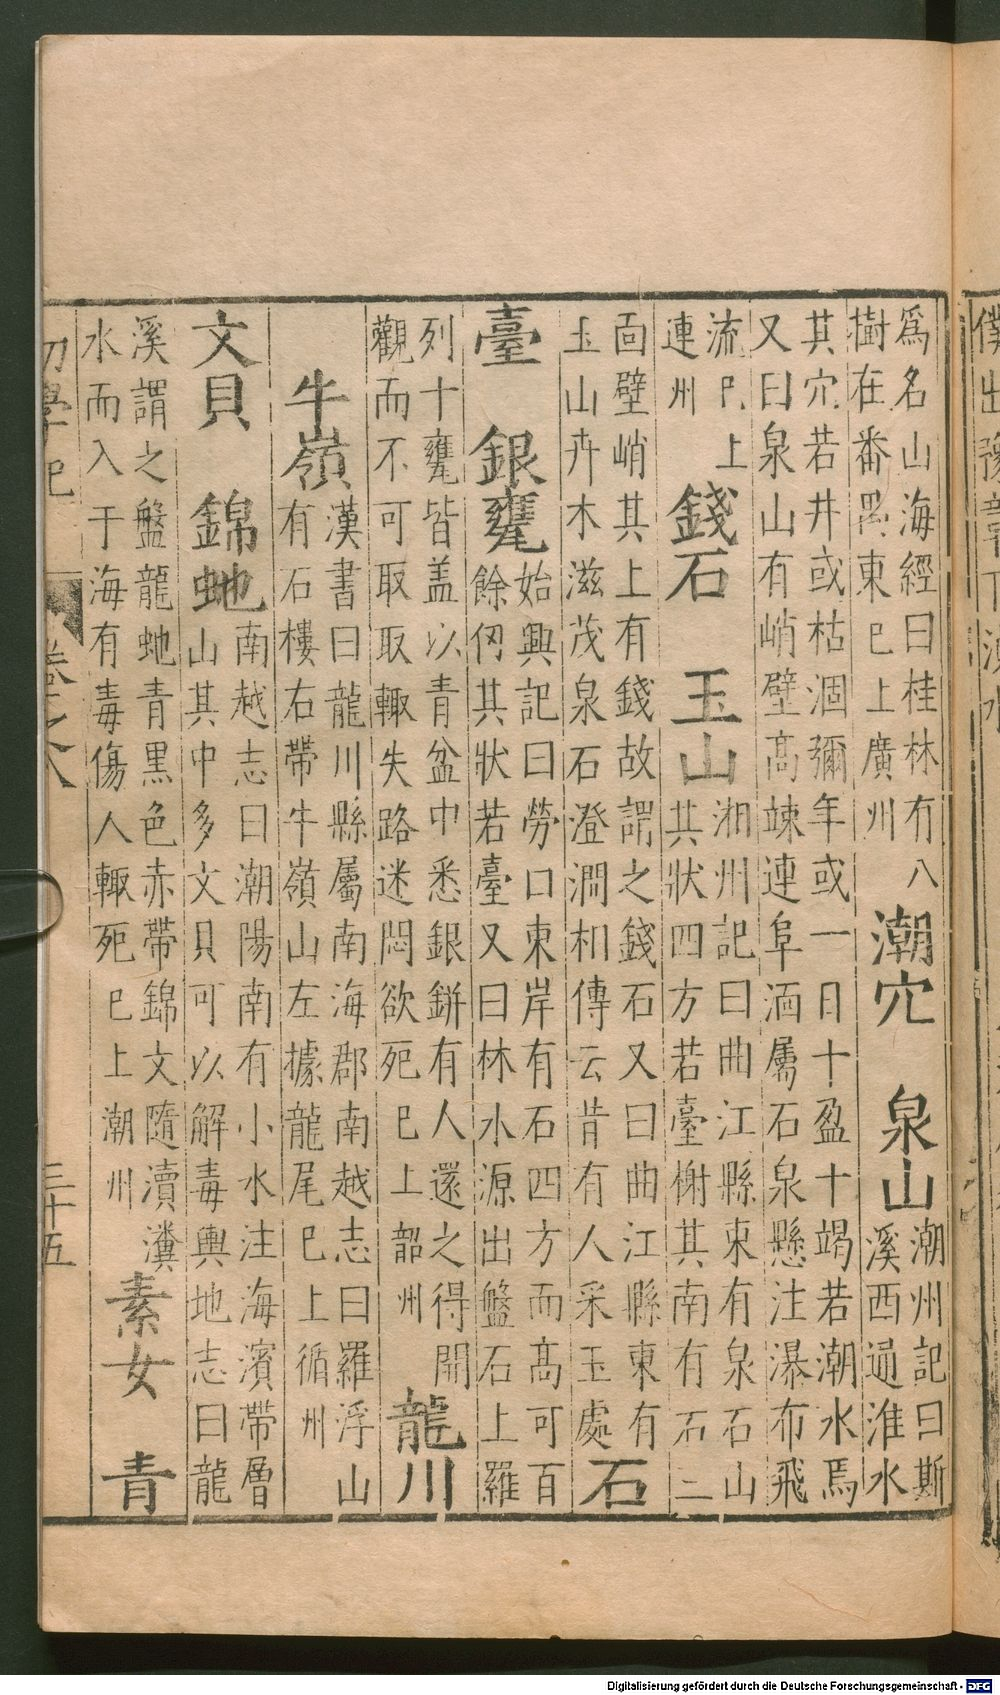 爲名山海經曰桂林有八
樹在番禺東巳上廣州
潮穴 泉山
潮州記曰斯
溪西通淮水
其穴若井或枯涸彌年或一日十盈十竭若潮水焉
又曰泉山有峭壁高竦連阜洒屬石泉懸注瀑布飛
流巳上
連州
錢石 玉山
湘州記曰曲江縣東有泉石山
其狀四方若臺榭其南有石二
面壁峭其上有錢故謂之錢石又曰曲江縣東有
玉山卉木滋茂泉石澄澗相傳云昔有人采玉處
石
臺 銀甕
始興記曰勞口東岸有石四方而高可百
餘仭其狀若臺又曰林水源出盤石上羅
列十甕皆盖以青盆中悉銀鉼有人還之得開
觀而不可取取輙失路迷悶欲死巳上韶州
龍川
牛嶺
漢書曰龍川縣屬南海郡南越志曰羅浮山
有石樓右帶牛嶺山左據龍尾巳上循州
文貝 錦虵
南越志曰潮陽南有小水注海濱帶層
山其中多文貝可以解毒輿地志曰龍
溪謂之盤龍虵青黑色赤帶錦文隨瀆瀵
水而入于海有毒傷人輙死巳上潮州
素女 青
初學記 卷之八 三十五
Digitalisierung gefördert durch die Deutsche Forschungsgemeinschaft - DFG